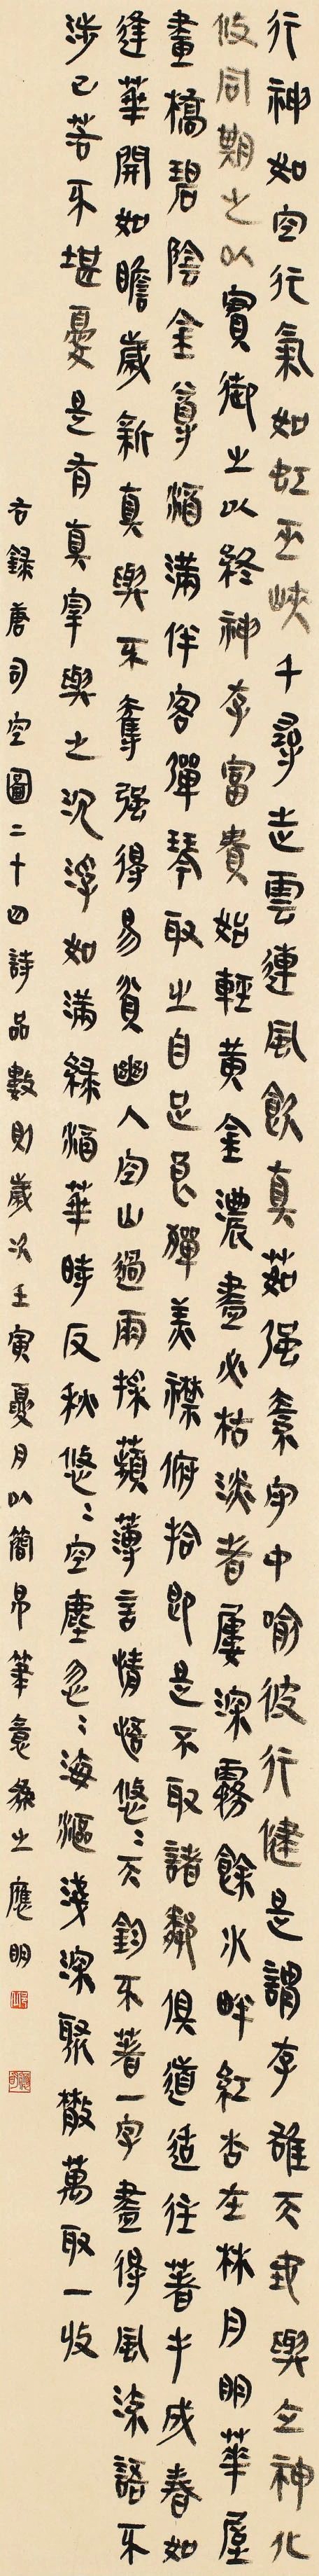 行神如空行氣如虹巫峽千尋走雲連風飲真茹强素守中喻彼行健是謂存雄天地與立神化
攸同期之以實御之以終神存富貴始輕黃金濃盡必枯淡者屢深霧餘水畔紅杏在林月明華屋
畫橋碧陰金尊酒滿伴客彈琴取之自足良殫美襟俯拾即是不取諸鄰俱道適往著手成春如
逢華開如瞻歲新真與不奪强得易貧幽人空山過雨採蘋薄言情悟悠〻天鈞不著一字盡得風流語不
涉已若不堪憂是有真宰與之沉浮如滿綠酒華時反秋悠〻空塵忽〻海漚淺深聚散萬取一收
右錄唐司空圖二十四詩品數則歲次壬寅夏月以簡帛筆意為之應明